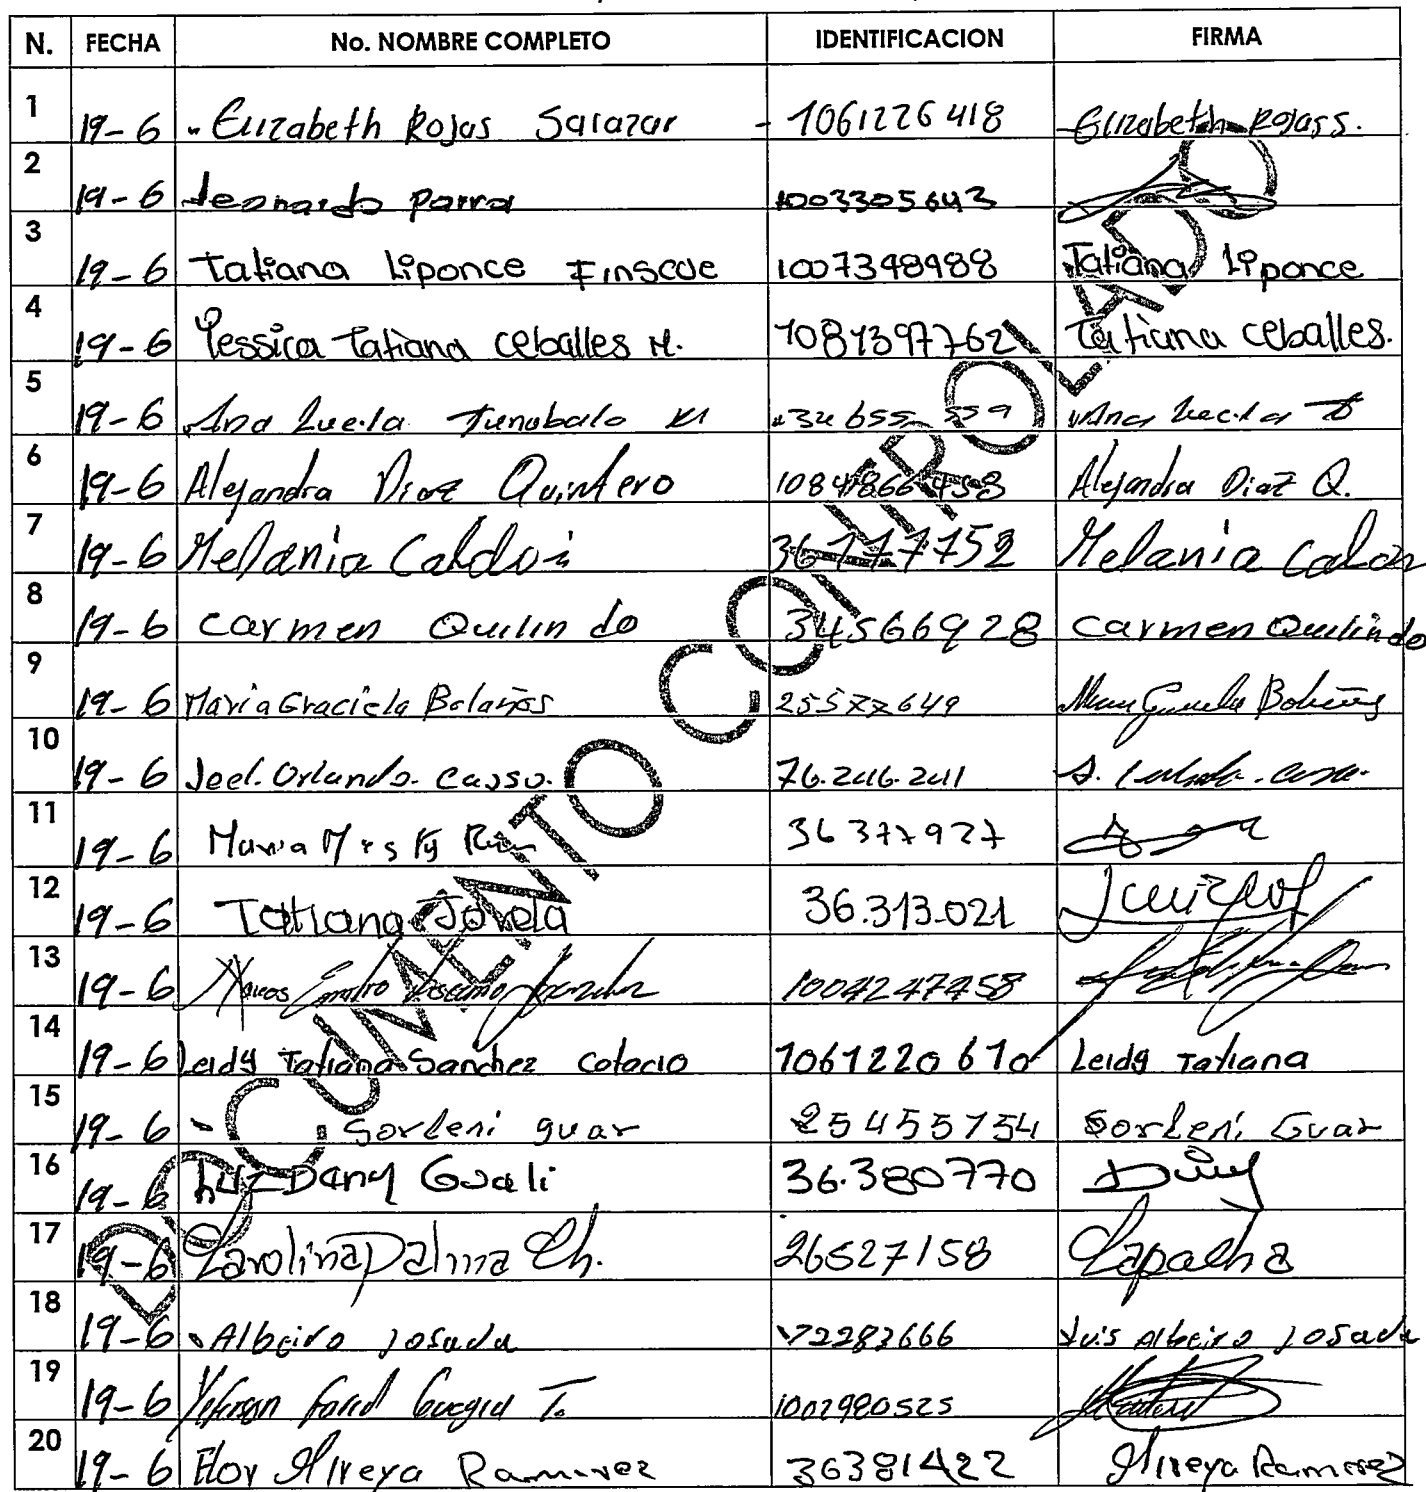 N. FECHA No. NOMBRE COMPLETO IDENTIFICACION FIRMA
1 19-6 Elizabeth Rojas Salazar - 1061226418 Elizabeth Rojas S.
2 19-6 Leonardo Parra 1003305643
3 19-6 Tatiana Liponce Finscue 1007348988 Tatiana Liponce
4 19-6 Yessica Tatiana Ceballes M. 1081397762 Tatiana Ceballes.
5 19-6 Ana Lucila Tunubalo 34655559 Ana Lucila T
6 19-6 Alejandra Diaz Quintero Alejandra Diaz Q.
7 19-6 Melania 36777752 Melania
8 19-6 Carmen Quilindo 34566928 Carmen Quilindo
9 19-6 Maria Graciela Bolaños 25577649 Bolaños
10 19-6 Joel. Orlando. Casso. 76.246.241
11 19-6 36377927
12 19-6 Tatiana Jovela 36.313.021
13 19-6 1004247458
14 19-6 Leidy Tatiana Sanchez Cotacio 1061220610 Leidy Tatiana
15 19-6 Sorleni guar 25455754 Sorleni Guar
16 19-6 Luz Dany Guali 36.380770 Dany
17 19-6 Carolina Palma Ch. 26527158
18 19-6 Albeiro Losada 72283666 Luis Albeiro Losada
19 19-6 1002980525
20 19-6 Flor Mireya Ramirez 36381422 Mireya Ramirez
DOCUMENTO CONTROLADO